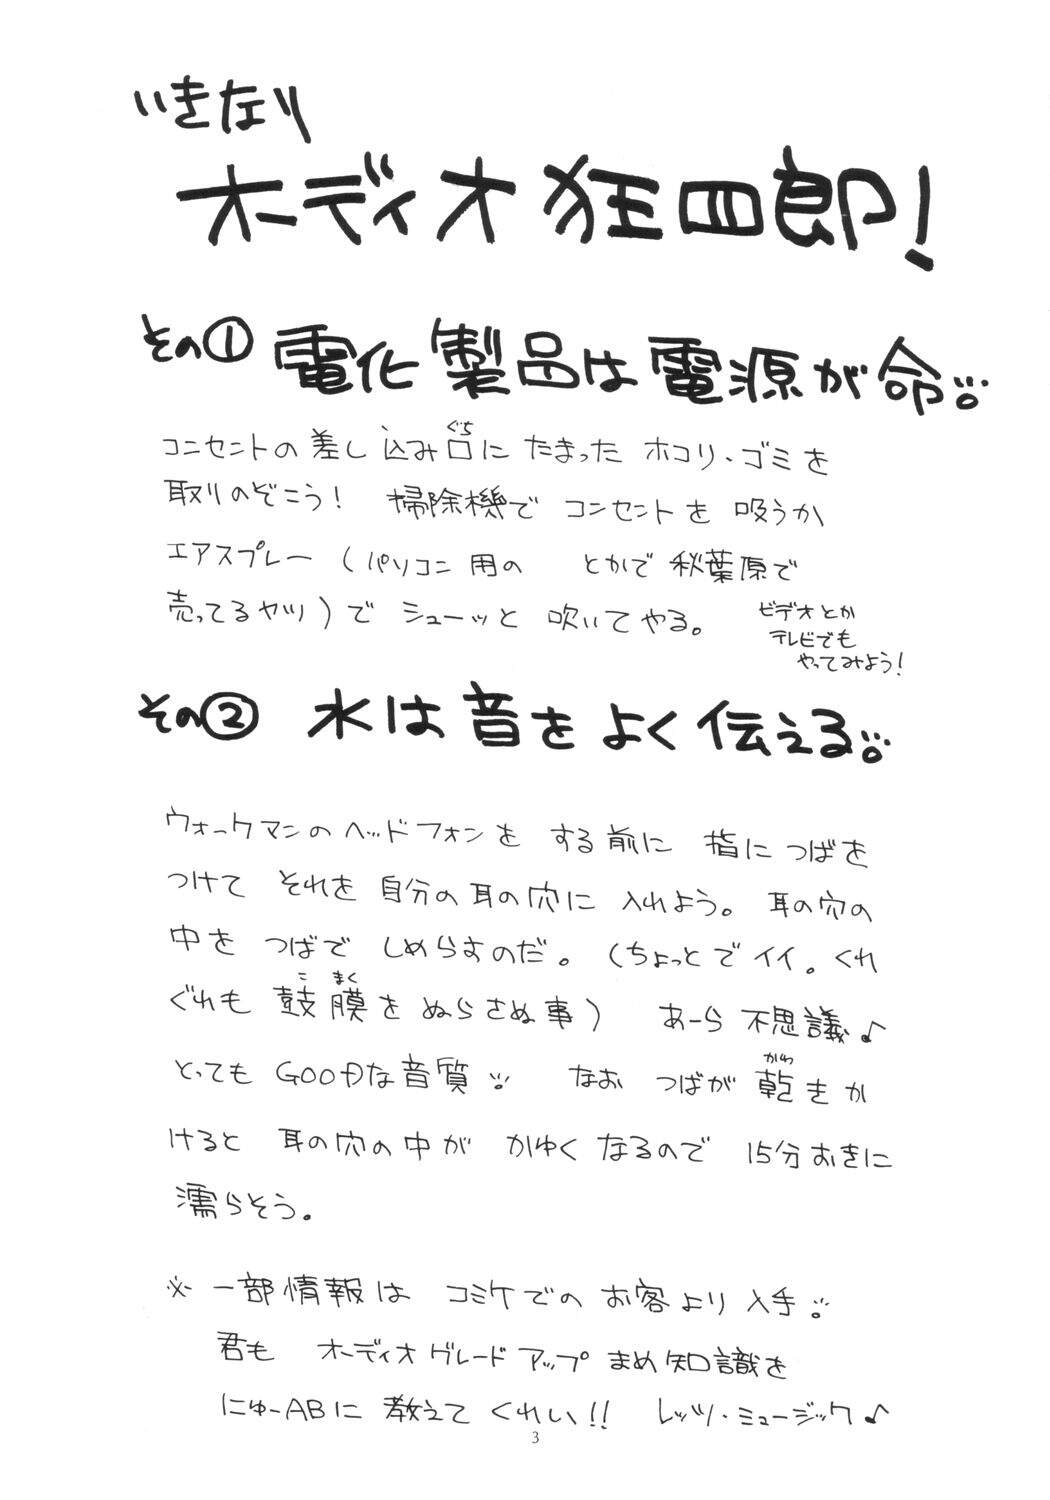 いきなり
オーディオ狂四郎!
その① 電化製品は電源が命
コンセントの差し込み口にたまった ホコリ、ゴミを
取りのぞこう! 掃除機で コンセントを 吸うか
エアスプレー (パソコン用の とかで 秋葉原で
売ってるヤツ)で シューッと 吹いてやる。
ビデオとか
テレビでも
やってみよう!
その② 水は音をよく伝える
ウォークマンのヘッドフォンを する前に 指につばを
つけて それを 自分の耳の穴に 入れよう。 耳の穴の
中を つばで しめらすのだ。(ちょっとでイイ。くれ
ぐれも 鼓膜をぬらさぬ事) あーら 不思議♪
とってもGOODな音質 なお つばが 乾きか
けると 耳の穴の中が かゆくなるので 15分おきに
濡らそう。
※ 一部情報は コミケでの お客より入手
君も オーディオグレードアップまめ知識を
にゅーABに 教えてくれい!! レッツ・ミュージック♪
3